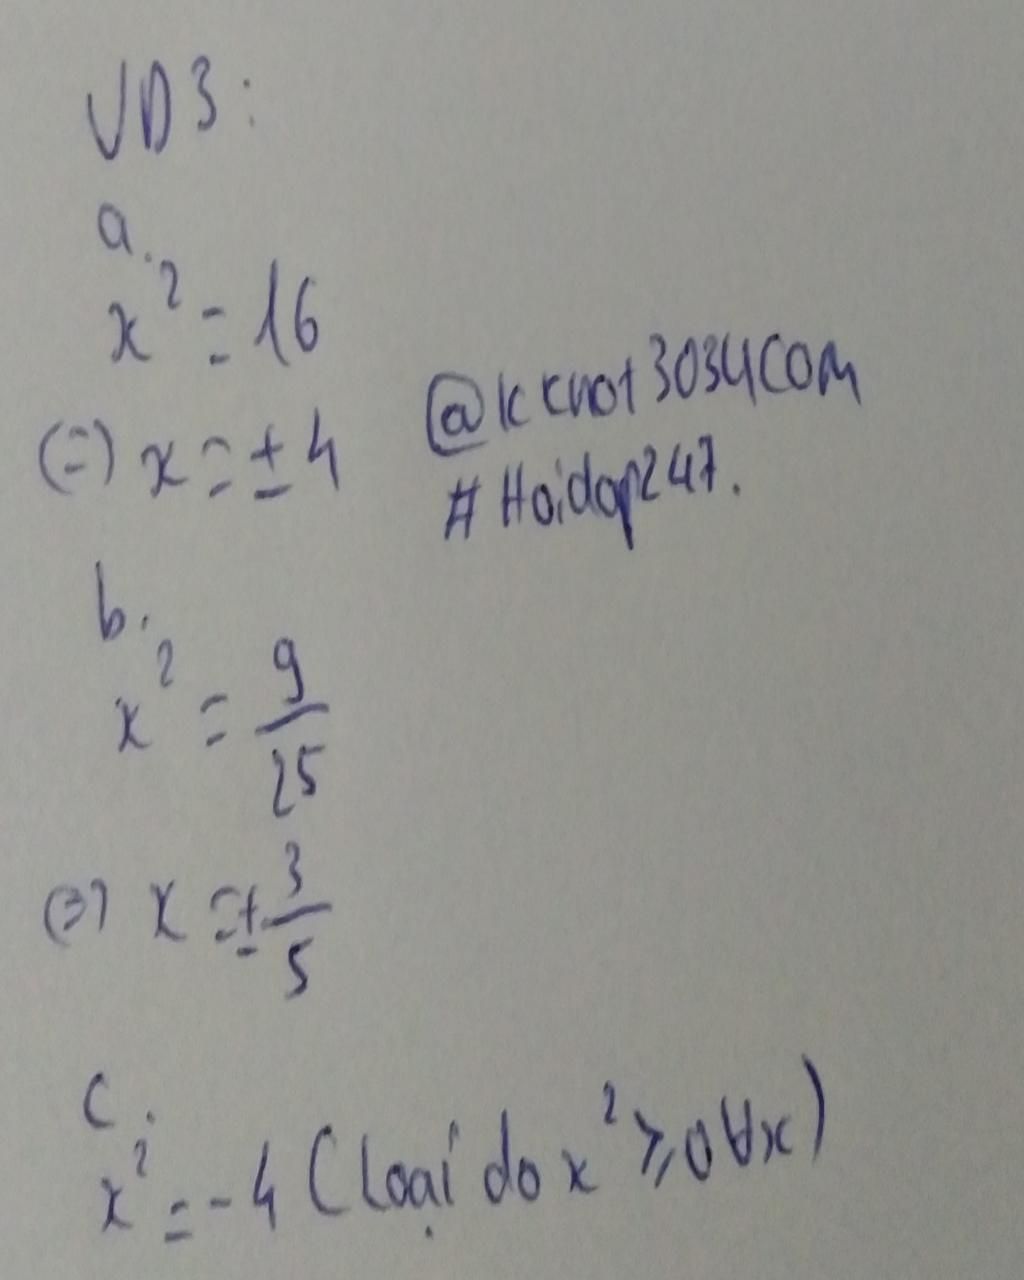 VD3:
a.
x² = 16
(=) x = ± 4
@kknot3034com
#Hoidap247.
b.
x² = 9/25
(=) x = ± 3/5
c.
x² = -4 (loại do x² ⩾ 0 ∀x)